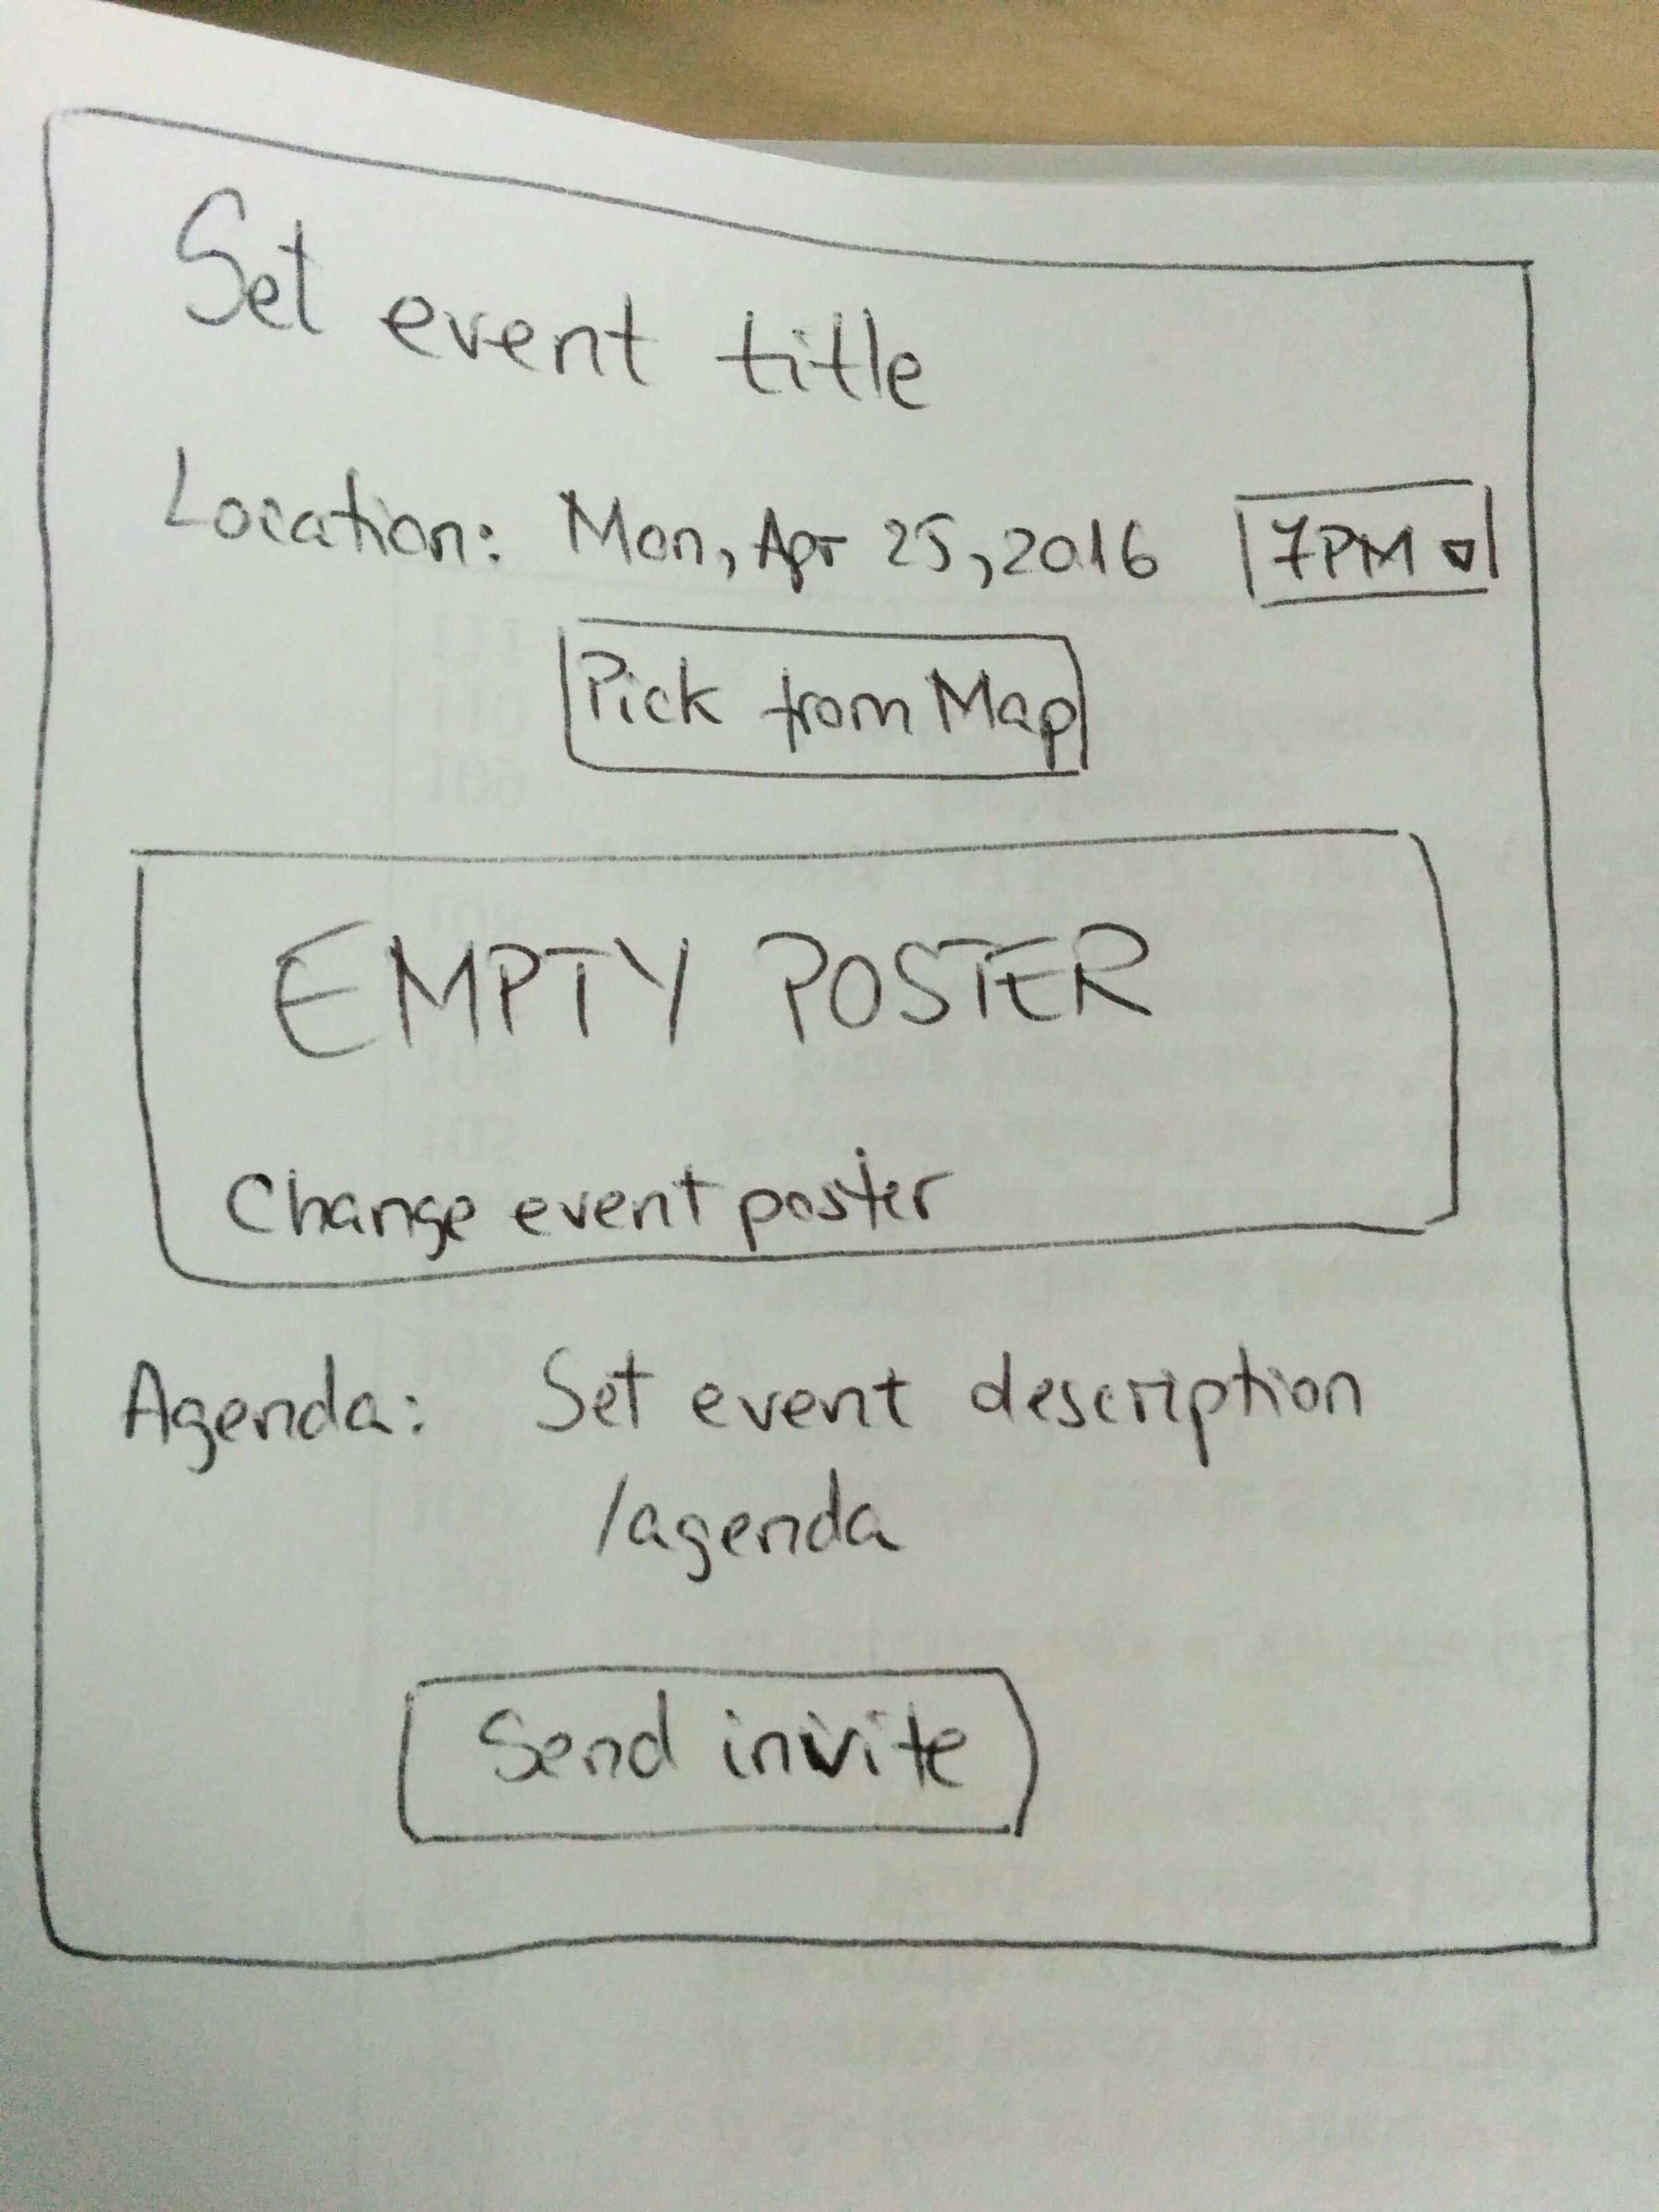 Set event title
Location: Mon, Apr 25, 2016 7PM
Pick from Map
EMPTY POSTER
Change event poster
Agenda: Set event description
/agenda
Send invite